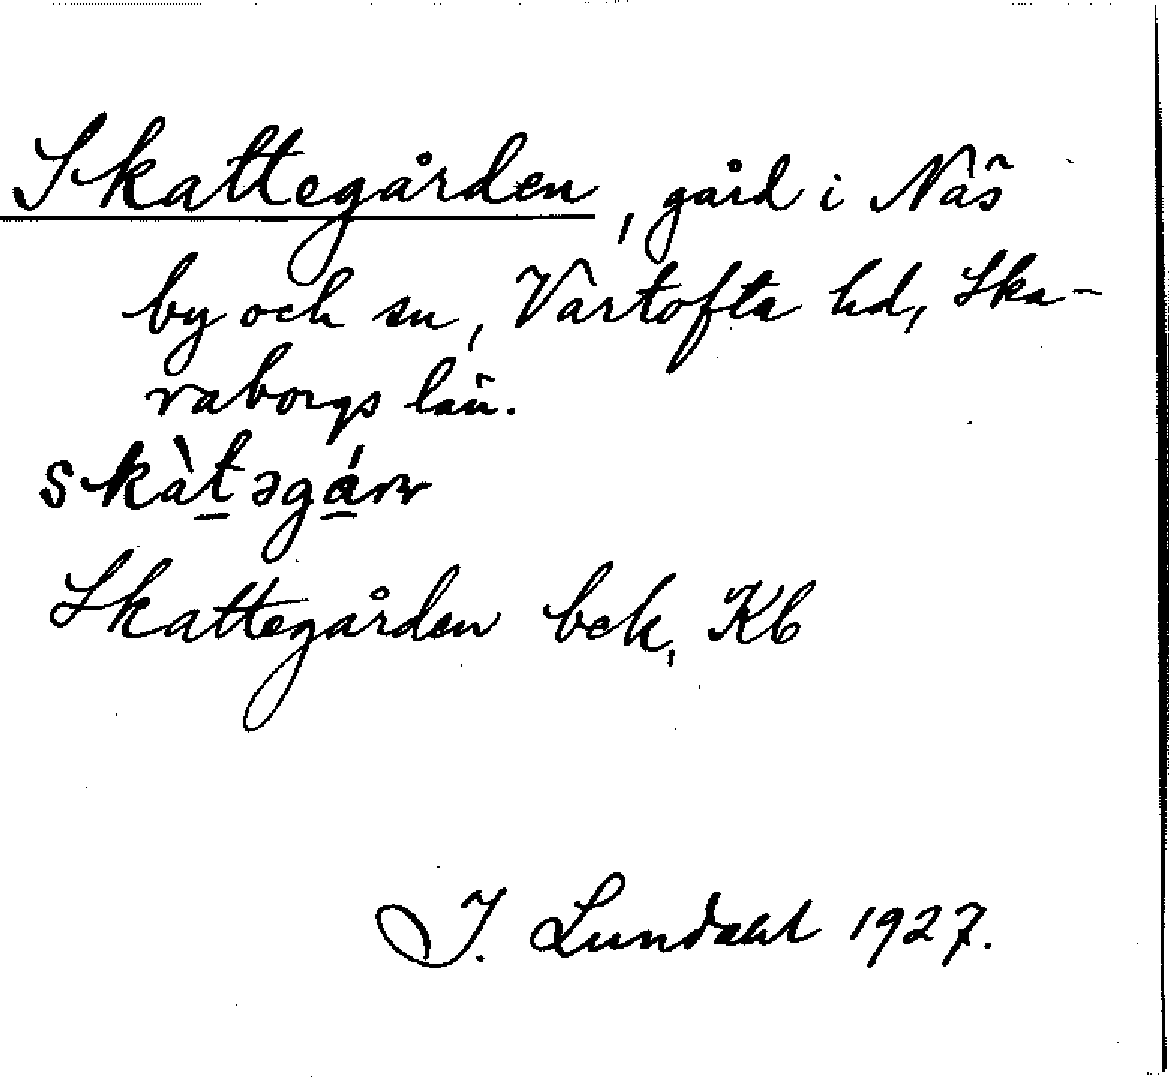 Skattegården, gård i Näs
by och sn, Vartofta hd, Ska-
raborgs län.
skàt̠əgá̠rn
Skattegården bek, Kb
I. Lundahl 1927.